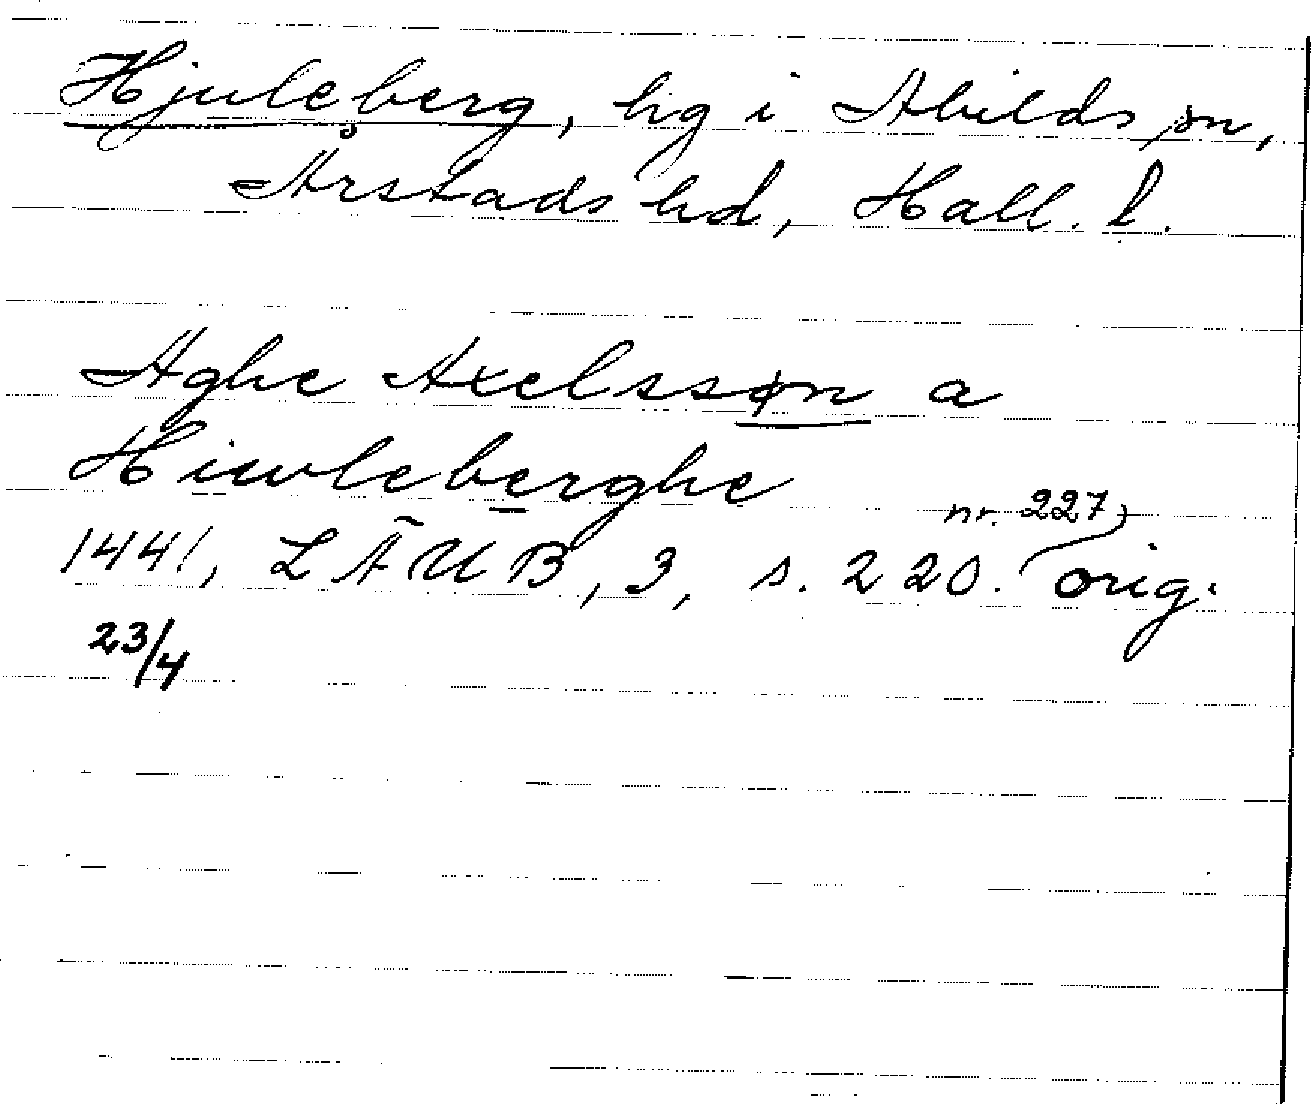 Hjuleberg, hg i Abilds sn,
Årstads hd, Hall. l.
Aghe Axelssøn a
Hiwleberghe
nr. 227,
1441, LÄUB, 3, s. 220. orig.
23/4